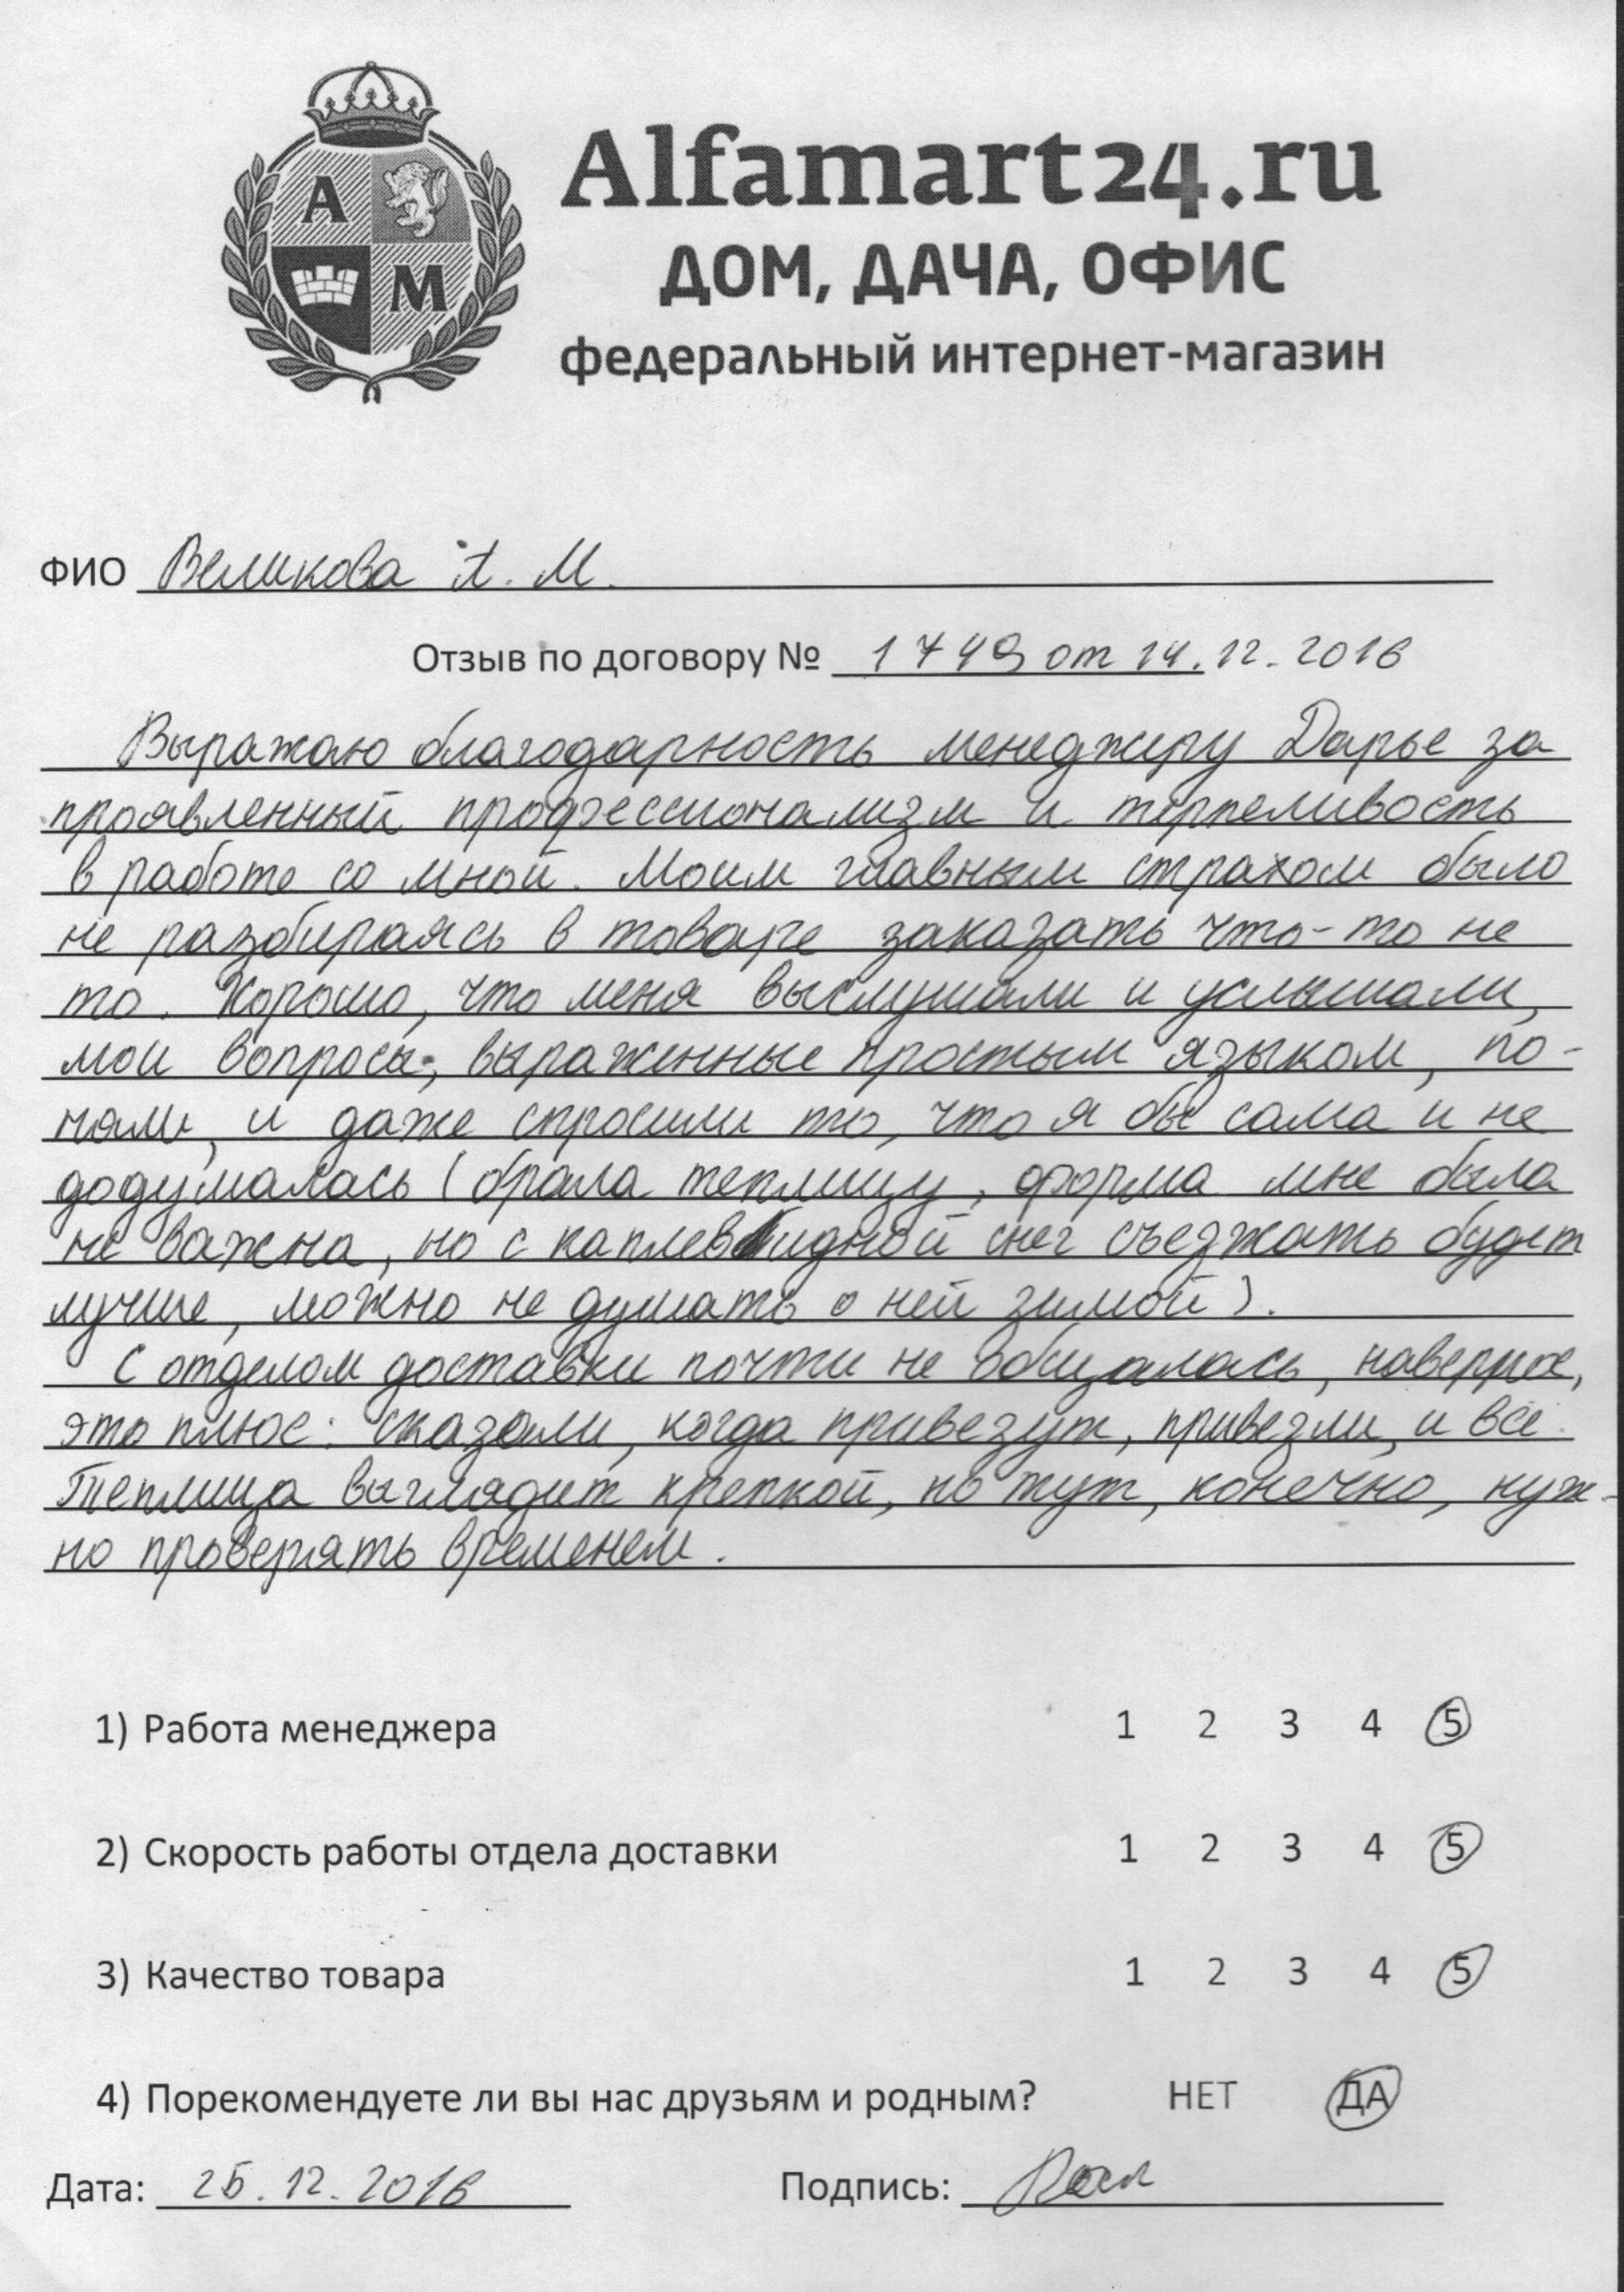 А М
Alfamart24.ru
ДОМ, ДАЧА, ОФИС
федеральный интернет-магазин
ФИО Великова А. М.
Отзыв по договору № 1749 от 14.12.2016
Выражаю благодарность менеджеру Дарье за
проявленный профессионализм и терпеливость
в работе со мной. Моим главным страхом было
не разбираясь в товаре заказать что-то не
то. Хорошо, что меня выслушали и услышали,
мои вопросы, выраженные простым языком, по-
няли, и даже спросили то, что я бы сама и не
додумалась (брала теплицу, форма мне была
не важна, но с каплевидной снег съезжать будет
лучше, можно не думать о ней зимой).
С отделом доставки почти не общалась, наверное,
это плюс: сказали, когда привезут, привезли, и всё.
Теплица выглядит крепкой, но тут, конечно, нуж-
но проверять временем.
1) Работа менеджера 1 2 3 4 5
2) Скорость работы отдела доставки 1 2 3 4 5
3) Качество товара 1 2 3 4 5
4) Порекомендуете ли вы нас друзьям и родным? НЕТ ДА
Дата: 25.12.2016 Подпись: